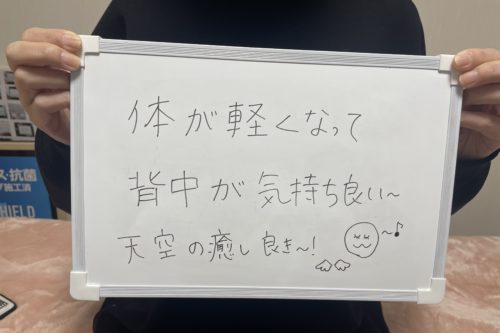 体が軽くなって
背中が気持ち良い〜
天空の癒し良き〜!
〜♪
ス・抗菌
施工済
HIELD